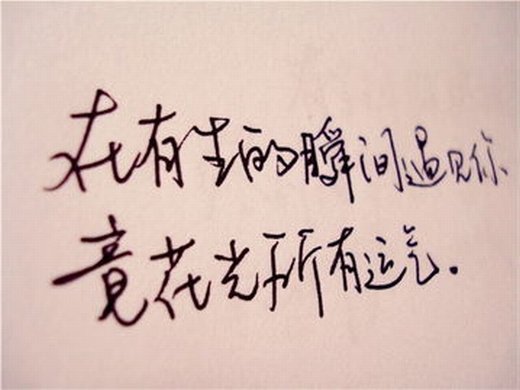 在有生的瞬间遇见你、
竟花光所有运气.